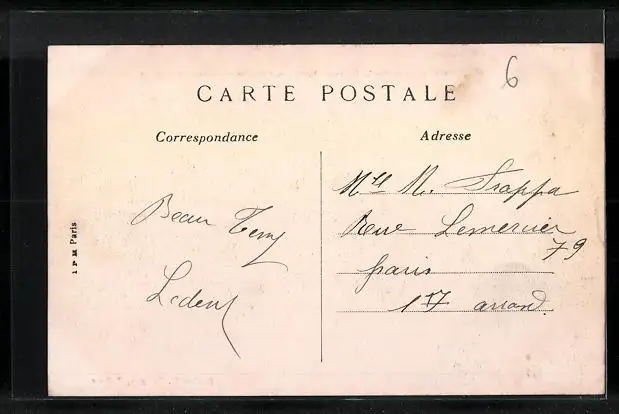 6
CARTE POSTALE
Correspondance
Adresse
Beau Temps
Ledent
Mlle M. Frappa
Rue Lemercier
79
paris
17 arrond.
I P M Paris